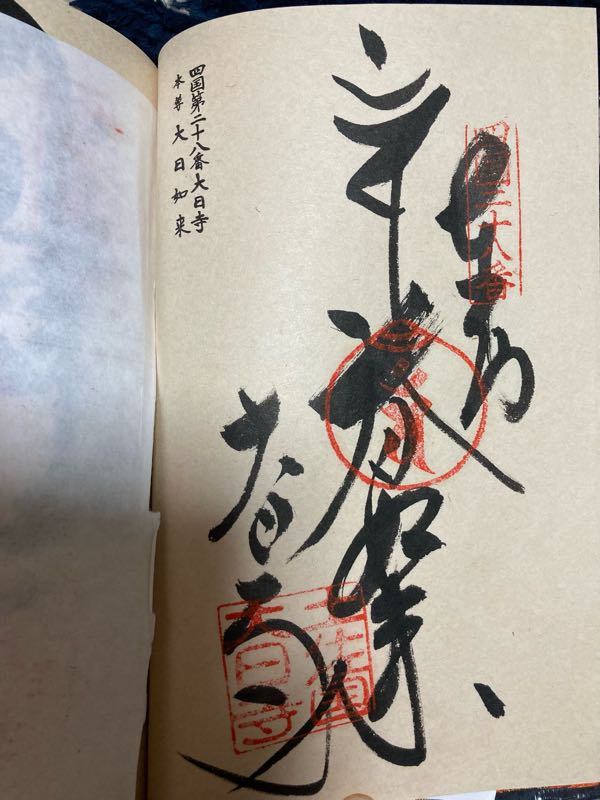 四国第二十八番大日寺
本尊 大日如来
四国二十八番
奉納
大日如来
大日寺
大日寺